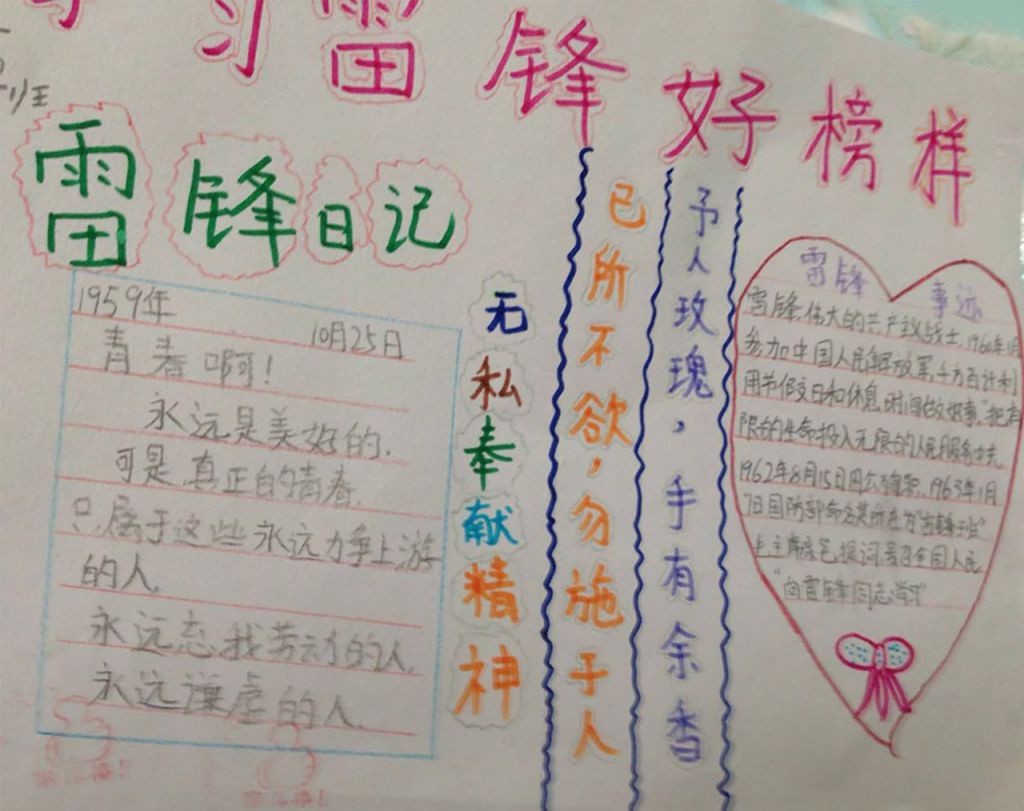 习雷锋好榜样
雷锋日记
1959年
10月25日
青春啊!
永远是美好的.
可是,真正的青春.
只属于这些永远力争上游
的人,
永远忘我劳动的人
永远谦虚的人.
无私奉献精神
已所不欲,勿施于人
予人玫瑰,手有余香
雷锋事迹
雷锋,伟大的共产主义战士,1960年1月
参加中国人民解放军,千方百计利
用节假日和休息时间做好事,"把有
限的生命投入无限的人民服务
1962年8月15日因公殉职,1963年1月
7日国防部命名其所在为"雷锋班"
毛主席 题词号召全国人民
"向雷锋同志学习"